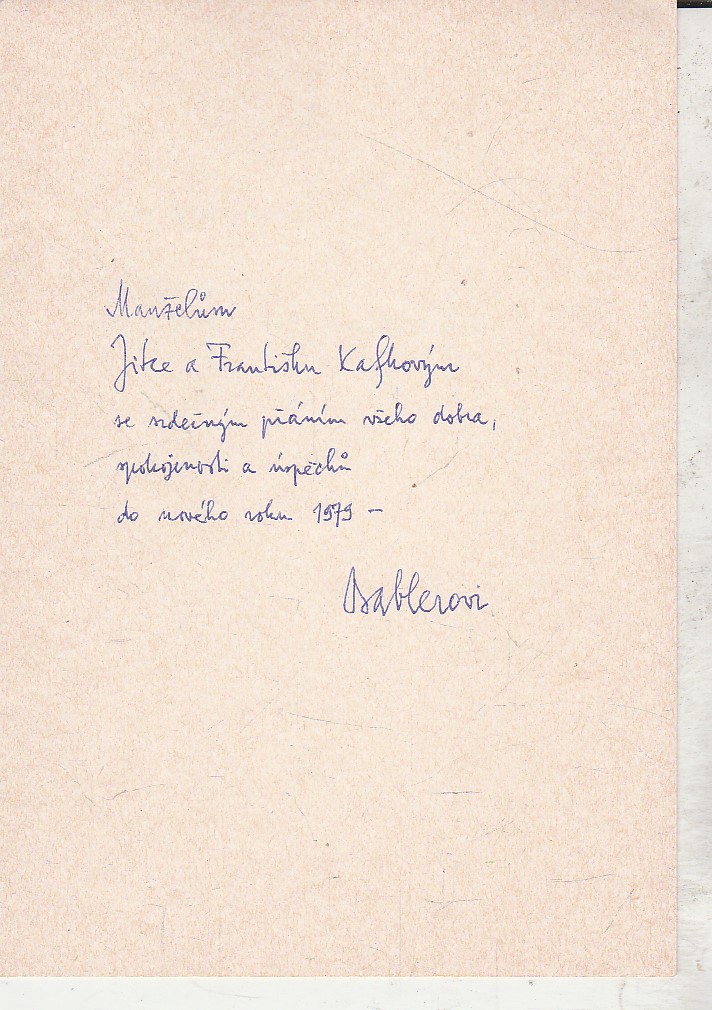 Manželům
Jitce a Františku Kafkovým
se srdečným přáním všeho dobra,
spokojenosti a úspěchů
do nového roku 1979 –
Bablerovi